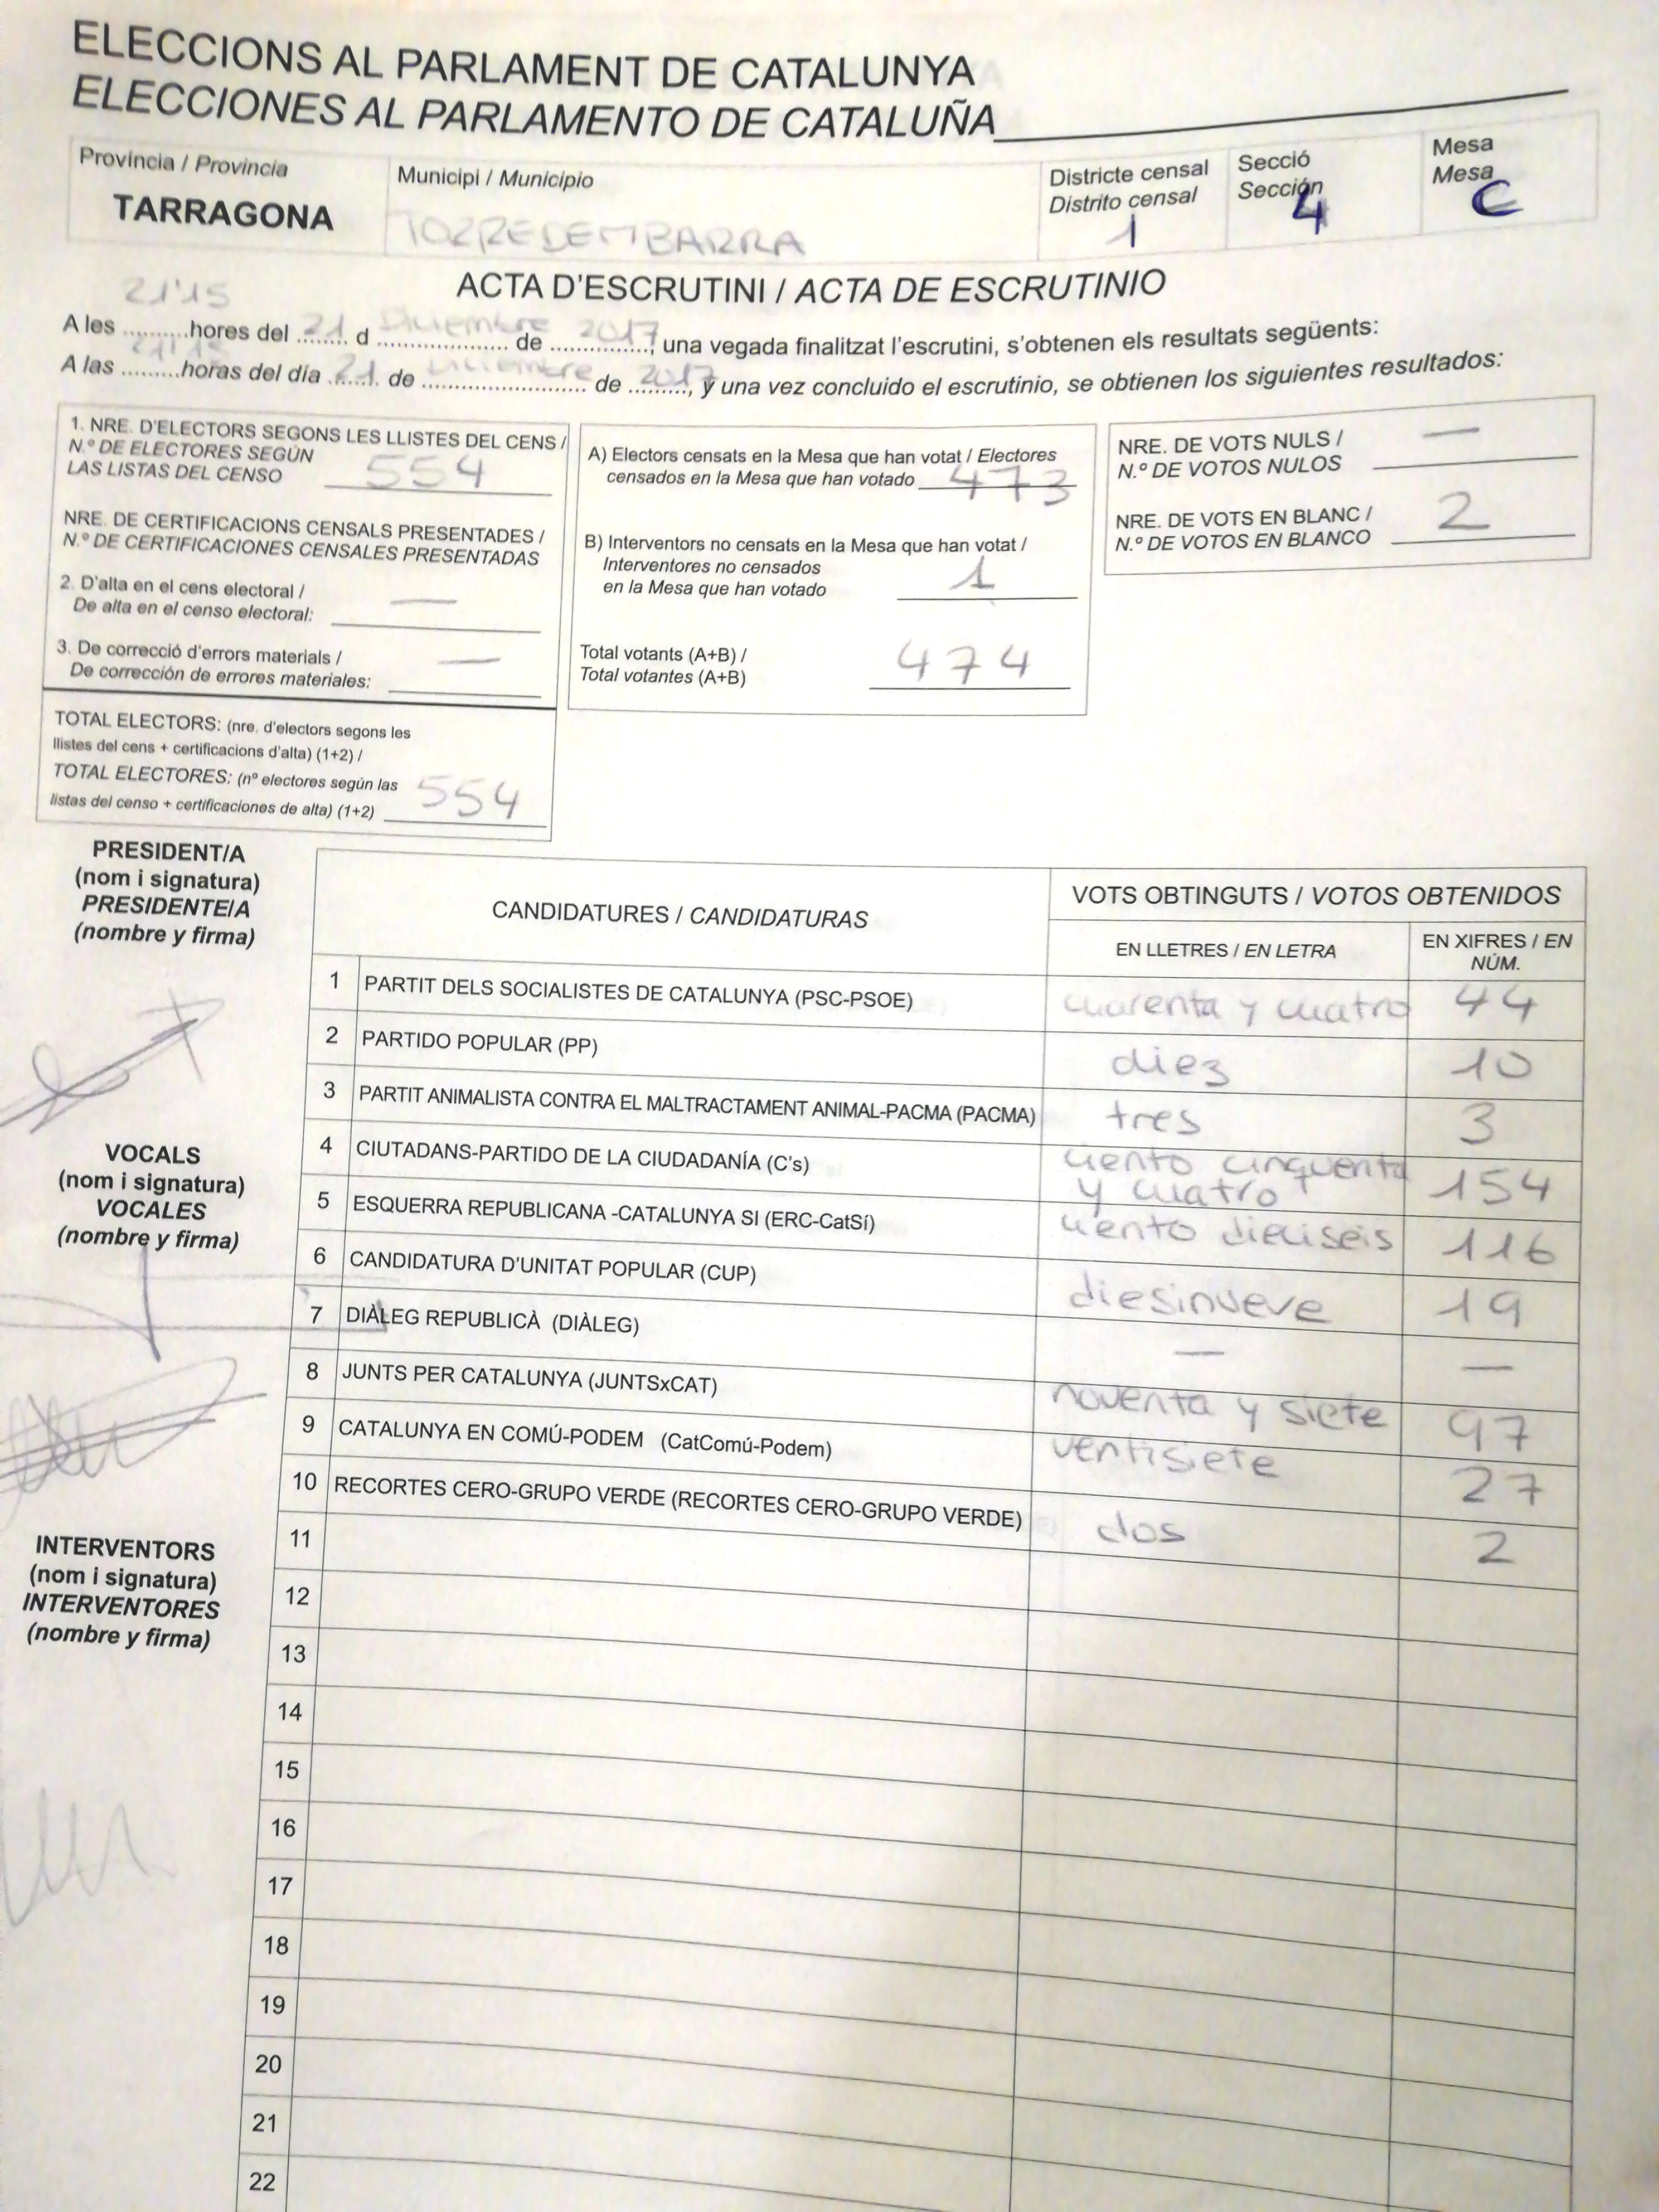 ELECCIONS AL PARLAMENT DE CATALUNYA
ELECCIONES AL PARLAMENTO DE CATALUÑA
Província / Provincia
TARRAGONA
Municipi / Municipio
TORREDEMBARRA
Districte censal
Distrito censal
1
Secció
Sección
4
Mesa
Mesa
C
ACTA D'ESCRUTINI / ACTA DE ESCRUTINIO
21'15
A les .........hores del 21 d Diciembre de 2017, una vegada finalitzat l'escrutini, s'obtenen els resultats següents:
21'15
A las .........horas del día 21 de Diciembre de 2017, y una vez concluido el escrutinio, se obtienen los siguientes resultados:
1. NRE. D'ELECTORS SEGONS LES LLISTES DEL CENS /
N.º DE ELECTORES SEGÚN
LAS LISTAS DEL CENSO 554
NRE. DE CERTIFICACIONS CENSALS PRESENTADES /
N.º DE CERTIFICACIONES CENSALES PRESENTADAS
2. D'alta en el cens electoral /
De alta en el censo electoral: —
3. De correcció d'errors materials /
De corrección de errores materiales: —
TOTAL ELECTORS: (nre. d'electors segons les
llistes del cens + certificacions d'alta) (1+2) /
TOTAL ELECTORES: (nº electores según las
listas del censo + certificaciones de alta) (1+2) 554
A) Electors censats en la Mesa que han votat / Electores
censados en la Mesa que han votado 473
B) Interventors no censats en la Mesa que han votat /
Interventores no censados
en la Mesa que han votado 1
Total votants (A+B) /
Total votantes (A+B) 474
NRE. DE VOTS NULS /
N.º DE VOTOS NULOS —
NRE. DE VOTS EN BLANC /
N.º DE VOTOS EN BLANCO 2
PRESIDENT/A
(nom i signatura)
PRESIDENTE/A
(nombre y firma)
VOCALS
(nom i signatura)
VOCALES
(nombre y firma)
INTERVENTORS
(nom i signatura)
INTERVENTORES
(nombre y firma)
CANDIDATURES / CANDIDATURAS
VOTS OBTINGUTS / VOTOS OBTENIDOS
EN LLETRES / EN LETRA
EN XIFRES / EN
NÚM.
1 PARTIT DELS SOCIALISTES DE CATALUNYA (PSC-PSOE) cuarenta y cuatro 44
2 PARTIDO POPULAR (PP) diez 10
3 PARTIT ANIMALISTA CONTRA EL MALTRACTAMENT ANIMAL-PACMA (PACMA) tres 3
4 CIUTADANS-PARTIDO DE LA CIUDADANÍA (C's) ciento cinquenta
y cuatro 154
5 ESQUERRA REPUBLICANA -CATALUNYA SI (ERC-CatSí) ciento dieciseis 116
6 CANDIDATURA D'UNITAT POPULAR (CUP) diesinueve 19
7 DIÀLEG REPUBLICÀ (DIÀLEG) — —
8 JUNTS PER CATALUNYA (JUNTSxCAT) noventa y siete 97
9 CATALUNYA EN COMÚ-PODEM (CatComú-Podem) ventisiete 27
10 RECORTES CERO-GRUPO VERDE (RECORTES CERO-GRUPO VERDE) dos 2
11
12
13
14
15
16
17
18
19
20
21
22